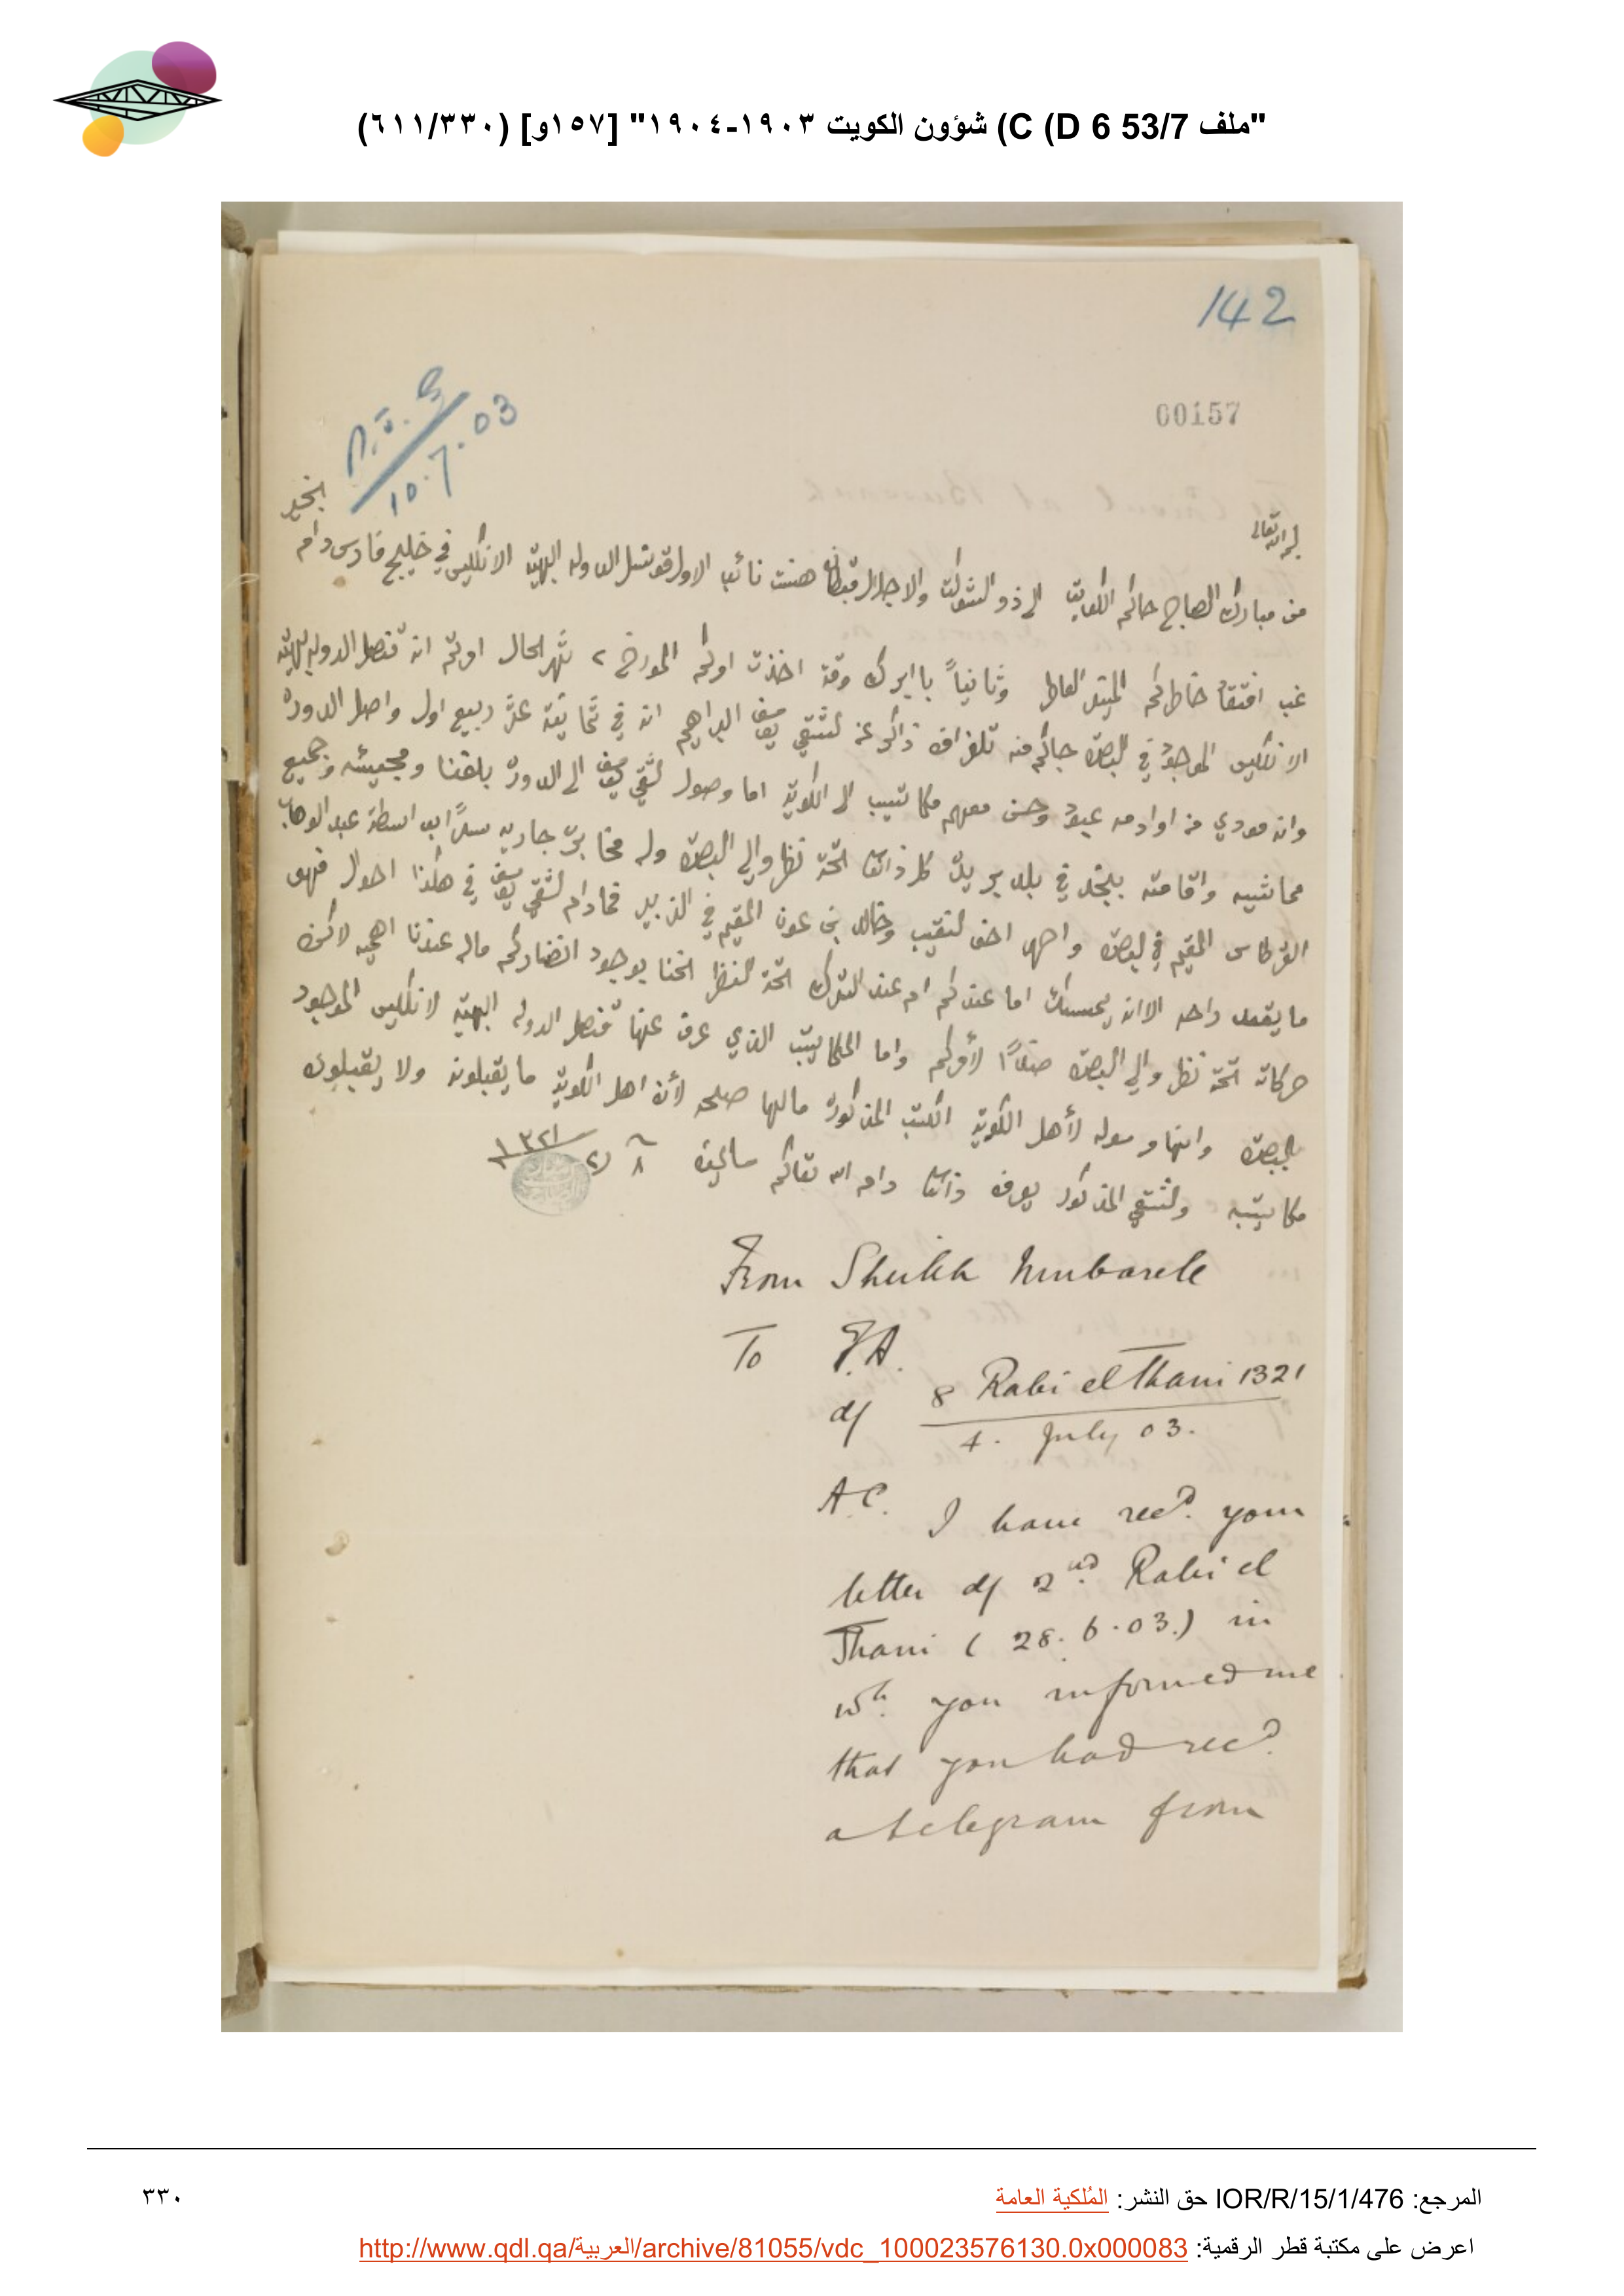 "ملف 53/7 C (D 6) شؤون الكويت ١٩٠٣-١٩٠٤" [١٥٧و] (٦١١/٣٣٠)
142
00157
10.7.03
بخير
بسم الله تعالى
من مبارك الصباح حاكم الكويت الى ذو الشوكت والاجلال قبطان هنت نائب الاول قونسل الدوله البهية الانكليس في خليج فارس دام
غب افتقاد خاطركم وثانياً باابرك وقت اخذت اوكم المورخ ٢ شهر الحال اوكم انه قنصل الدوله البهيه
الانكليس الموجود في البصرة جاكم منه تلغراف ذاكر عن لشقي يوسف البراهيم انه في ثمانية عشر ربيع اول واصل الدوره
وانه مودي من اوادمه وحسن معهم مكاتيب الى الكويت اما وصول لشقي يوسف الى الدورة بلغنا ومجيئه وجميع
مماشيه واقامته بنجد في بلد بريده كل ذالك تحت نظر والي البصرة وله مخابره جاريه سراً ابو اسطة عبد الوهاب
القرطاس المقيم في البصرة واحمد اخو لنقيب وخالد بن عون المقيم في الزبير فمادام لشقي يوسف في هكذا احوال فهو
ما يقعد راحه الا انه يحسبك اما عندكم ام عند الترك تحت النظر احنا بوجود انضاركم ماله عندنا اهميه لاكن
حركاته تحت نظر والي البصرة لأوكم واما المكاتيب الذي عرف عنها قنصل الدوله البهيه لانكليس الموجود
بالبصرة وانها رسوله لأهل الكويت الكتب المذكورة مالها صلحه لأن اهل الكويت ما يقبلونه ولا يقبلون
مكاتيبه ولشقي المذكور يعرف ذالك دام الله بقاكم سالمين ٨ ر٢ ١٣٢١
From Sheikh Mubarek
To P.A.
d/ 8 Rabi el Thani 1321
4. July 03.
A.C. I have recd. your
letter d/ 2nd. Rabi el
Thani (28.6.03.) in
wh. you informed me
that you had recd.
a telegram from
المرجع: IOR/R/15/1/476 حق النشر: المُلكية العامة
٣٣٠
اعرض على مكتبة قطر الرقمية: http://www.qdl.qa/العربية/archive/81055/vdc_100023576130.0x000083